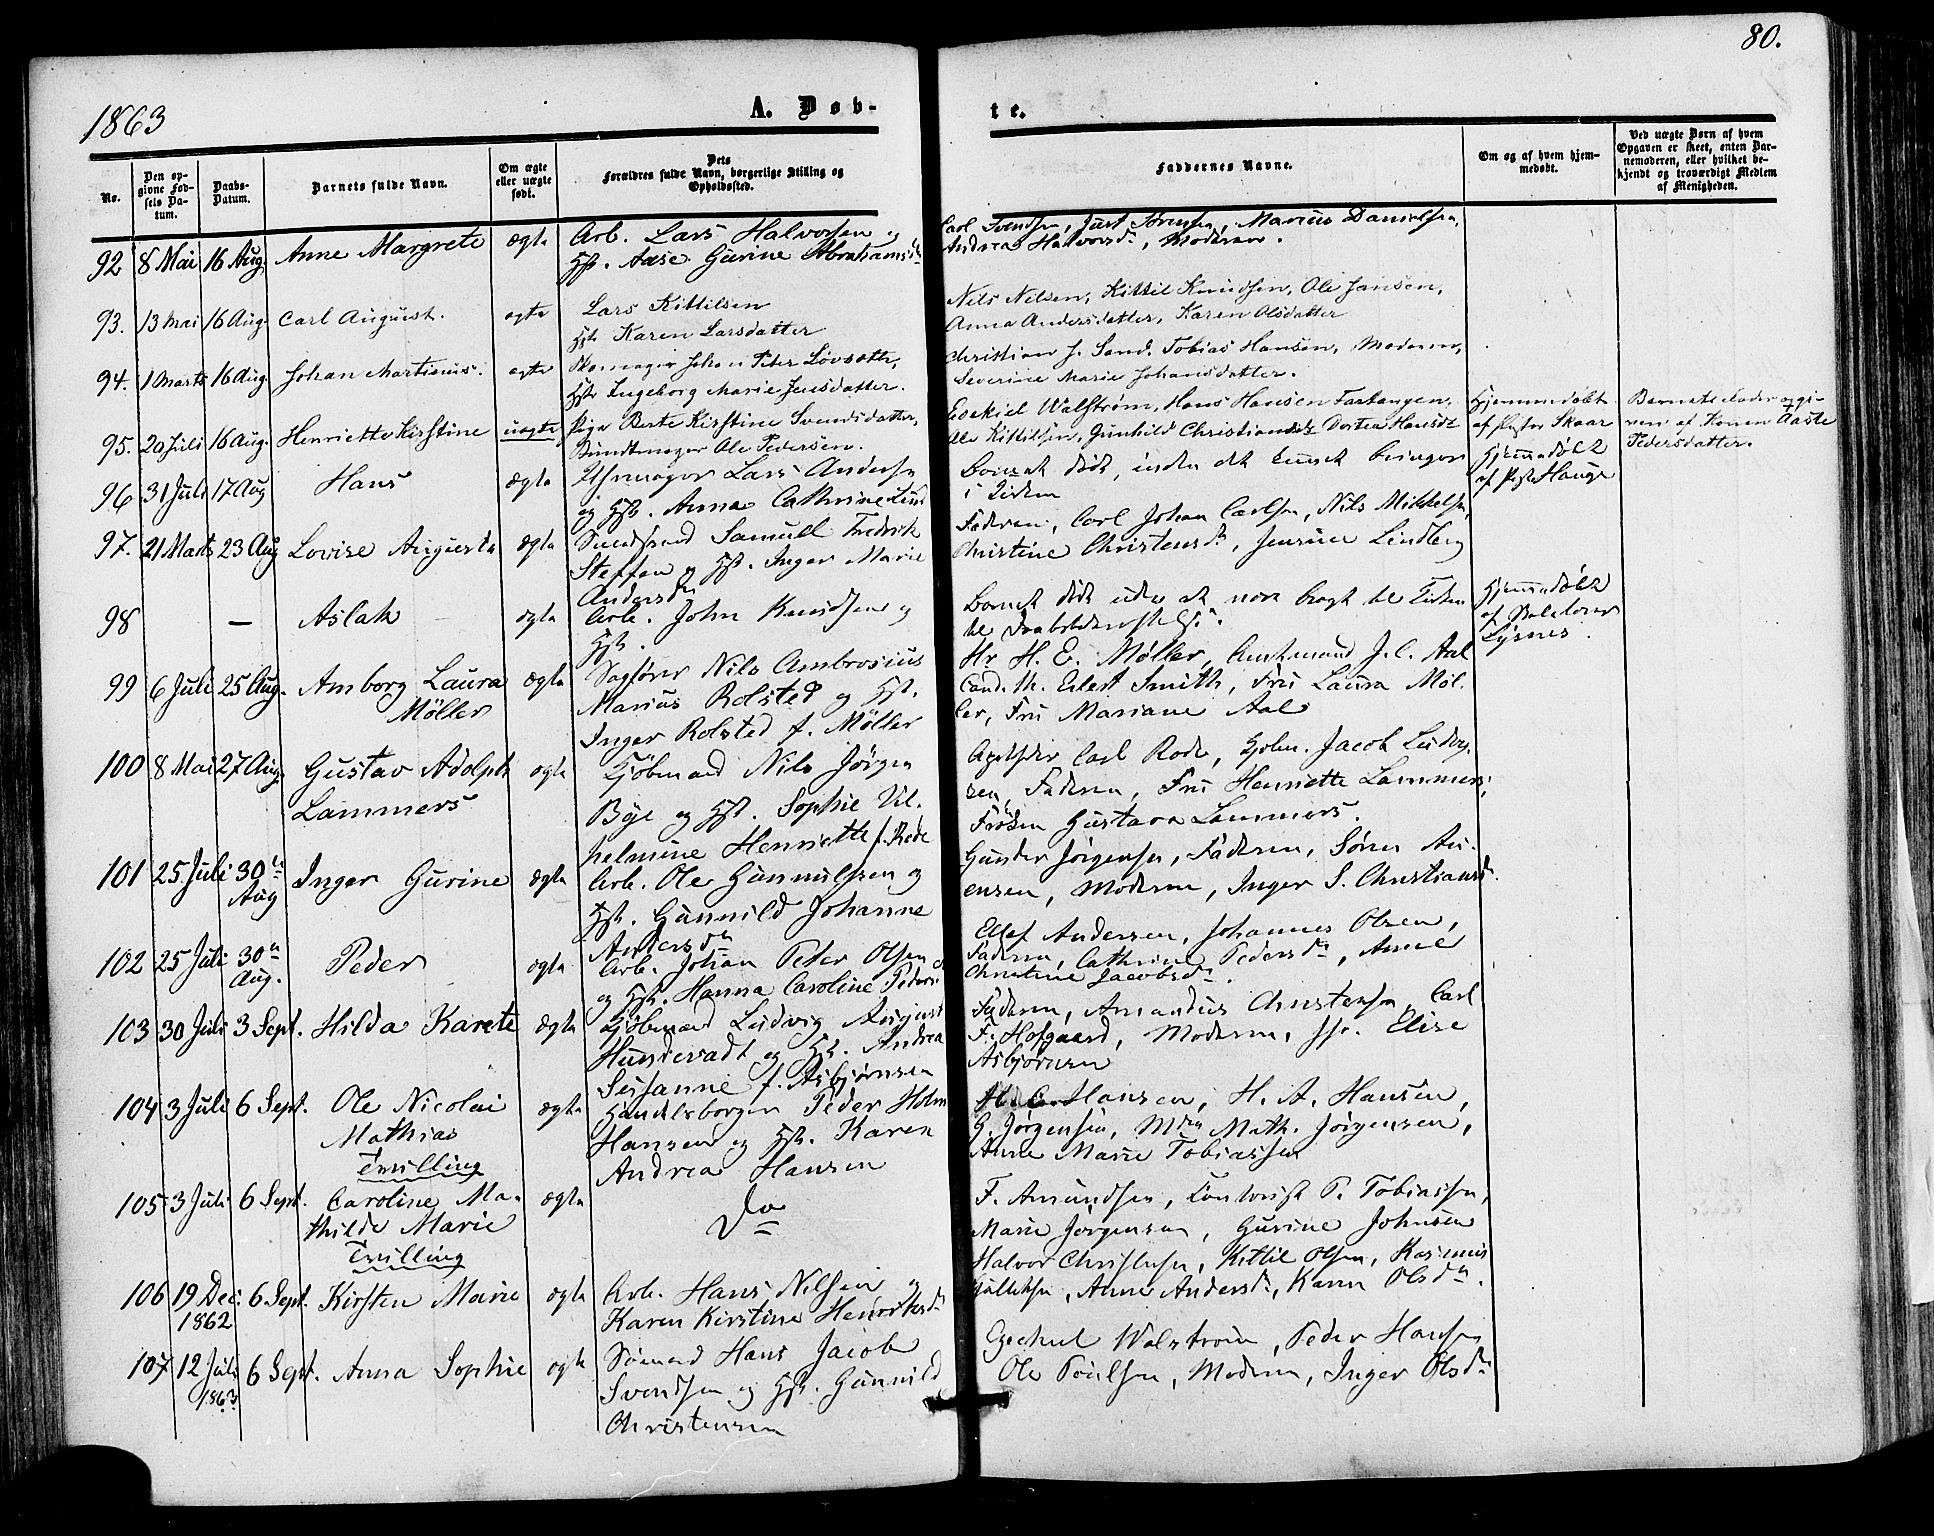 80.
1863
A. Døb-
te.
No.
Den op-
givne Fød-
sels Da-
tum.
Daabs-
Datum.
Barnets fulde Navn.
Om ægte
eller uægte
født.
Dets
Forældres fulde Navn, borgerlige Stilling og
Opholdssted.
Faddernes Navne.
Om og af hvem hjem-
medøbt.
Ved uægte Børn af hvem
Opgaven er skeet, enten Bar-
nemoderen, eller hvilket be-
kjendt og troværdigt Medlem
af Menigheden.
92 8 Mai 16 Aug Anne Margrete ægte Arb. Lars Halvorsen og
Hst. Aase Gurine Abrahamsd.
Carl Svendsen, Just Sørensen, Marius Danielsen,
Andrea Halvorsd., Moderen.
93. 13 Mai 16 Aug. Carl August. ægte Lars Kittilsen
Hst. Karen Larsdatter
Nils Nilsen, Kittil Knudsen, Ole Jansen,
Anna Andersdatter, Karen Olsdatter
94. 1 Marts 16 Aug. Johan Martinius. ægte Skomager Johan Peter Løvsæth,
Hst. Ingeborg Marie Jensdatter.
Christian J. Sand. Tobias Hansen, Moderen,
Severine Marie Johansdatter.
95. 20 Juli 16 Aug. Henriette Kirstine uægte Pige Berte Kirstine Svendsdatter,
Bundtmager Ole Pedersen.
Esekiel Walstrøm, Hans Hansen Fartangen,
Ole Kittilsen, Gunhild Christiansd. Dortea Hansd.
Hjemmedøbt
af Pastor Skaar
Barnets Fader opgi-
ven af Konen Aaste
Pedersdatter.
96 31 Juli 17 Aug Hans ægte Uhrmager Lars Andersen
og Hst. Anna Cathrine Lund
Barnet død, inden det kunde bringes
i Kirken
Hjemmedøbt
af Pastor Hauge
97. 21 Marts 23 Aug Lovise Augusta ægte Smedsvend Samuel Fredrik
Steffen og Hst. Inger Marie
Andersd.
Faderen, Carl Johan Carlsen, Nils Mikkelsen,
Christine Christensd., Jensine Lindberg
98 — Aslak ægte Arb. John Knudsen og
Hst.
Barnet død uden at være bragt til Kirken
til Daabsbekræftelse.
Hjemmedøbt
af
Lysnes.
99 6 Juli 25 Aug. Amborg Laura
Møller ægte Sagfører Nils Ambrosius
Marius Rolsted og Hst.
Inger Rolsted f. Møller
Hr H. E. Møller, Amtmand J. C. Aal
Cand. th. Eilert Smith, Fru Laura Møl-
ler, Fru Mariane Aal
100 8 Mai 27 Aug. Gustav Adolph
Lammers ægte Kjøbmand Nils Jørgen
Bøe og Hst. Sophie Vil-
helmine Henriette f. Rode
Apotheker Carl Rode, Kjøbm. Jacob Ludvig-
sen, Faderen, Fru Henriette Lammers,
Frøken Gustava Lammers.
101 25 Juli 30te
Aug Inger Gurine ægte Arb. Ole Gunnulfsen og
Hst. Gunnild Johanne
Andersd.
Gunder Jørgensen, Faderen, Søren An-
ensen, Moderen, Inger S. Christiansd.
102 25 Juli 30te
Aug. Peder ægte Arb. Johan Peter Olsen
og Hst. Hanna Caroline Pedersd.
Ellef Andersen, Johannes Olsen,
Faderen, Cathrine Pedersd., Anne
Christine Jacobsd.
103 30 Juli 3 Sept. Hilda Karete ægte Kjøbmand Ludvig August
Hundevadt og Hst. Andrea
Susanne f. Asbjørnsen
Faderen, Amandus Christensen, Carl
F. Hofgaard, Moderen, Jfr. Elise
Asbjørnsen
104 3 Juli 6 Sept. Ole Nicolai
Mathias
Tvilling ægte Handelsborger Peder Holm
Hansen og Hst. Karen
Andrea Hansen
Hansen, H. A. Hansen,
G. Jørgensen, Mad. Math. Jørgensen,
Anne Marie Tobiassen
105 3 Juli 6 Sept. Caroline Ma-
thilde Marie
Tvilling ægte Do
F. Amundsen, Contorist P. Tobiassen,
Marie Jørgensen, Gurine Johnsen
106 19 Dec.
1862 6 Sept. Kirsten Marie ægte Arb. Hans Nilsen og
Karen Kirstine Henriksd.
Halvor Christensen, Kittil Olsen, Rasmus
Gulliksen, Anne Andersd., Karen Olsd.
107 12 Juli
1863 6 Sept. Anna Sophie ægte Sømand Hans Jacob
Svendsen og Hst. Gunnild
Christensen
Ezechiel Walstrøm, Peder Hansen
Ole Poulsen, Moderen, Inger Olsd.